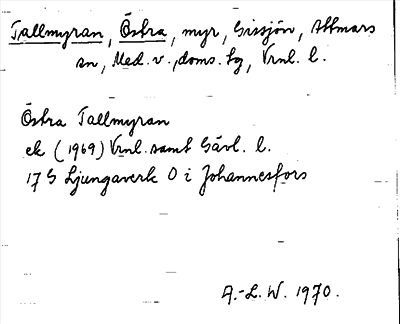 Tallmyran, Östra, myr, Gissjön, Attmars
sn, Med. v., doms. tg, Vrnl. l.
Östra Tallmyran
ek (1969) Vrnl. samt Gävl. l.
17 G Ljungaverk O i Johannesfors
A.-L. W. 1970.